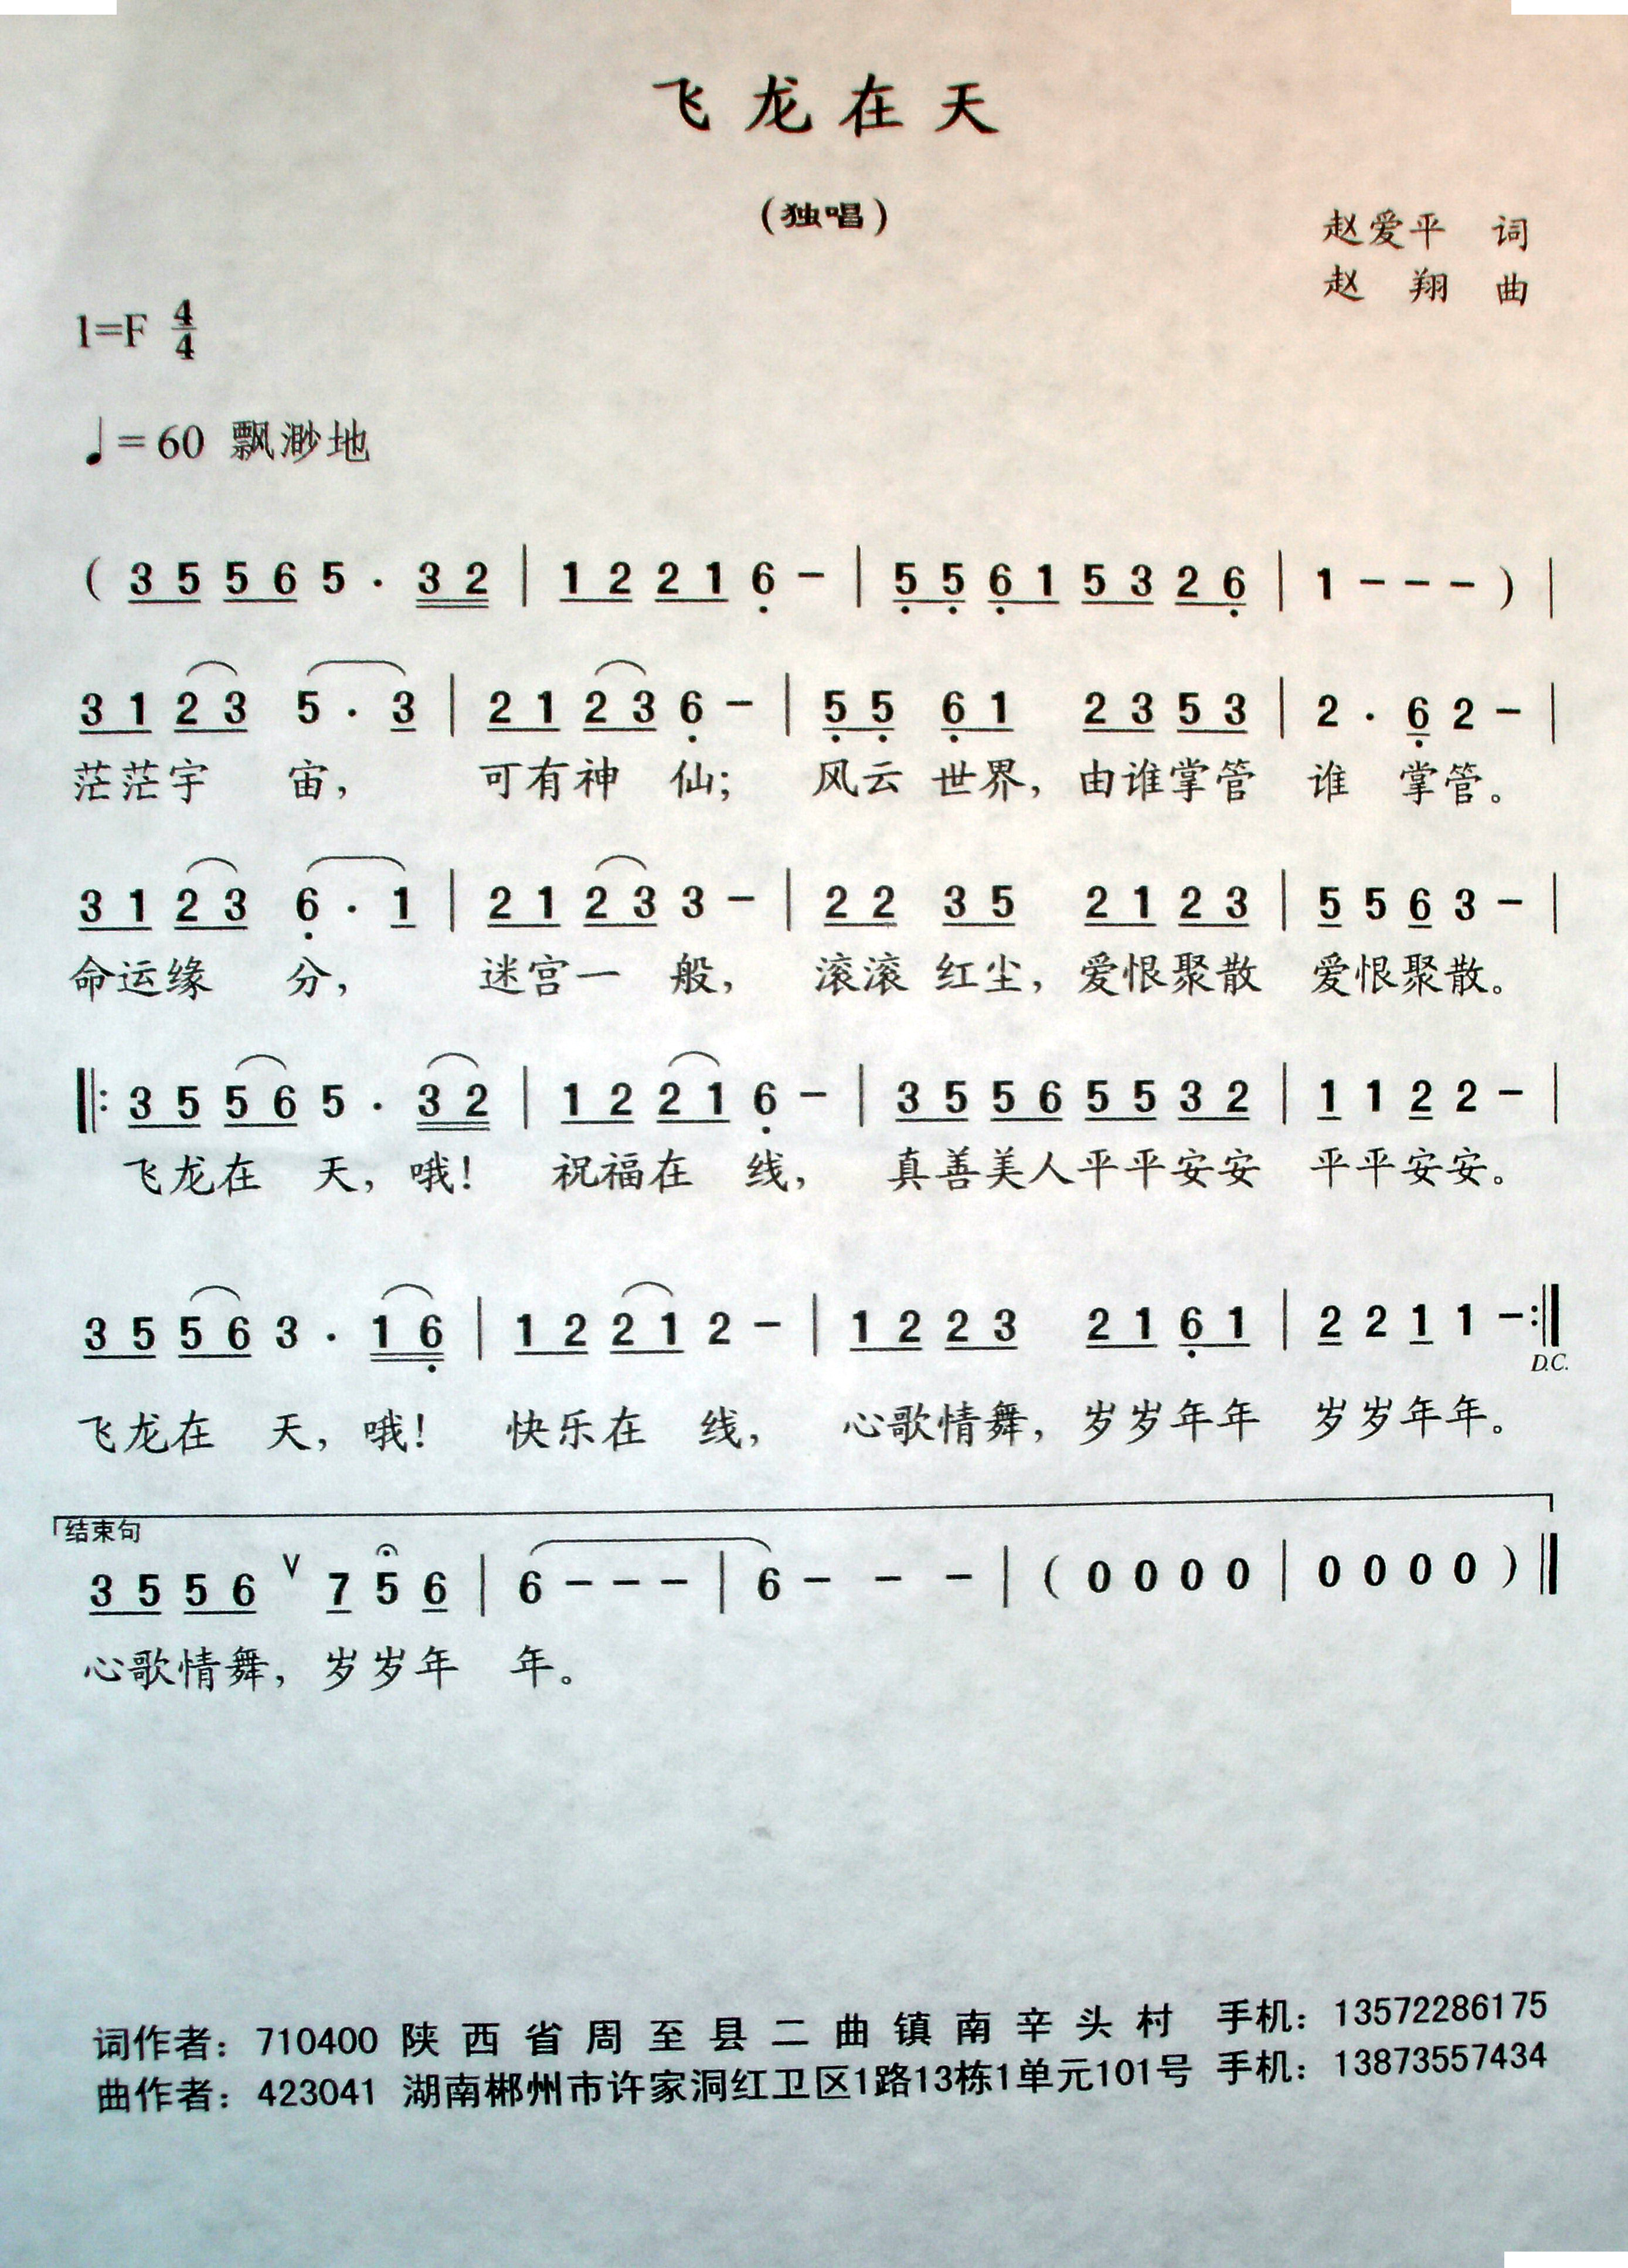 飞龙在天
(独唱)
赵爱平 词
赵 翔 曲
1=F 4/4
♩=60 飘渺地
( 3 5 5 6 5 · 3 2 | 1 2 2 1 6 – | 5 5 6 1 5 3 2 6 | 1 – – – ) |
3 1 2 3 5 · 3 | 2 1 2 3 6 – | 5 5 6 1 2 3 5 3 | 2 · 6 2 – |
茫茫宇 宙, 可有神 仙; 风云 世界, 由谁掌管 谁 掌管。
3 1 2 3 6 · 1 | 2 1 2 3 3 – | 2 2 3 5 2 1 2 3 | 5 5 6 3 – |
命运缘 分, 迷宫一 般, 滚滚 红尘, 爱恨聚散 爱恨聚散。
‖: 3 5 5 6 5 · 3 2 | 1 2 2 1 6 – | 3 5 5 6 5 5 3 2 | 1 1 2 2 – |
飞龙在 天, 哦! 祝福在 线, 真善美人平平安安 平平安安。
3 5 5 6 3 · 1 6 | 1 2 2 1 2 – | 1 2 2 3 2 1 6 1 | 2 2 1 1 – :‖
D.C.
飞龙在 天, 哦! 快乐在 线, 心歌情舞, 岁岁年年 岁岁年年。
结束句
3 5 5 6 V 7 5 6 | 6 – – – | 6 – – – | ( 0 0 0 0 | 0 0 0 0 ) ‖
心歌情舞, 岁岁年 年。
词作者: 710400 陕西省周至县二曲镇南辛头村 手机: 13572286175
曲作者: 423041 湖南郴州市许家洞红卫区1路13栋1单元101号 手机: 13873557434